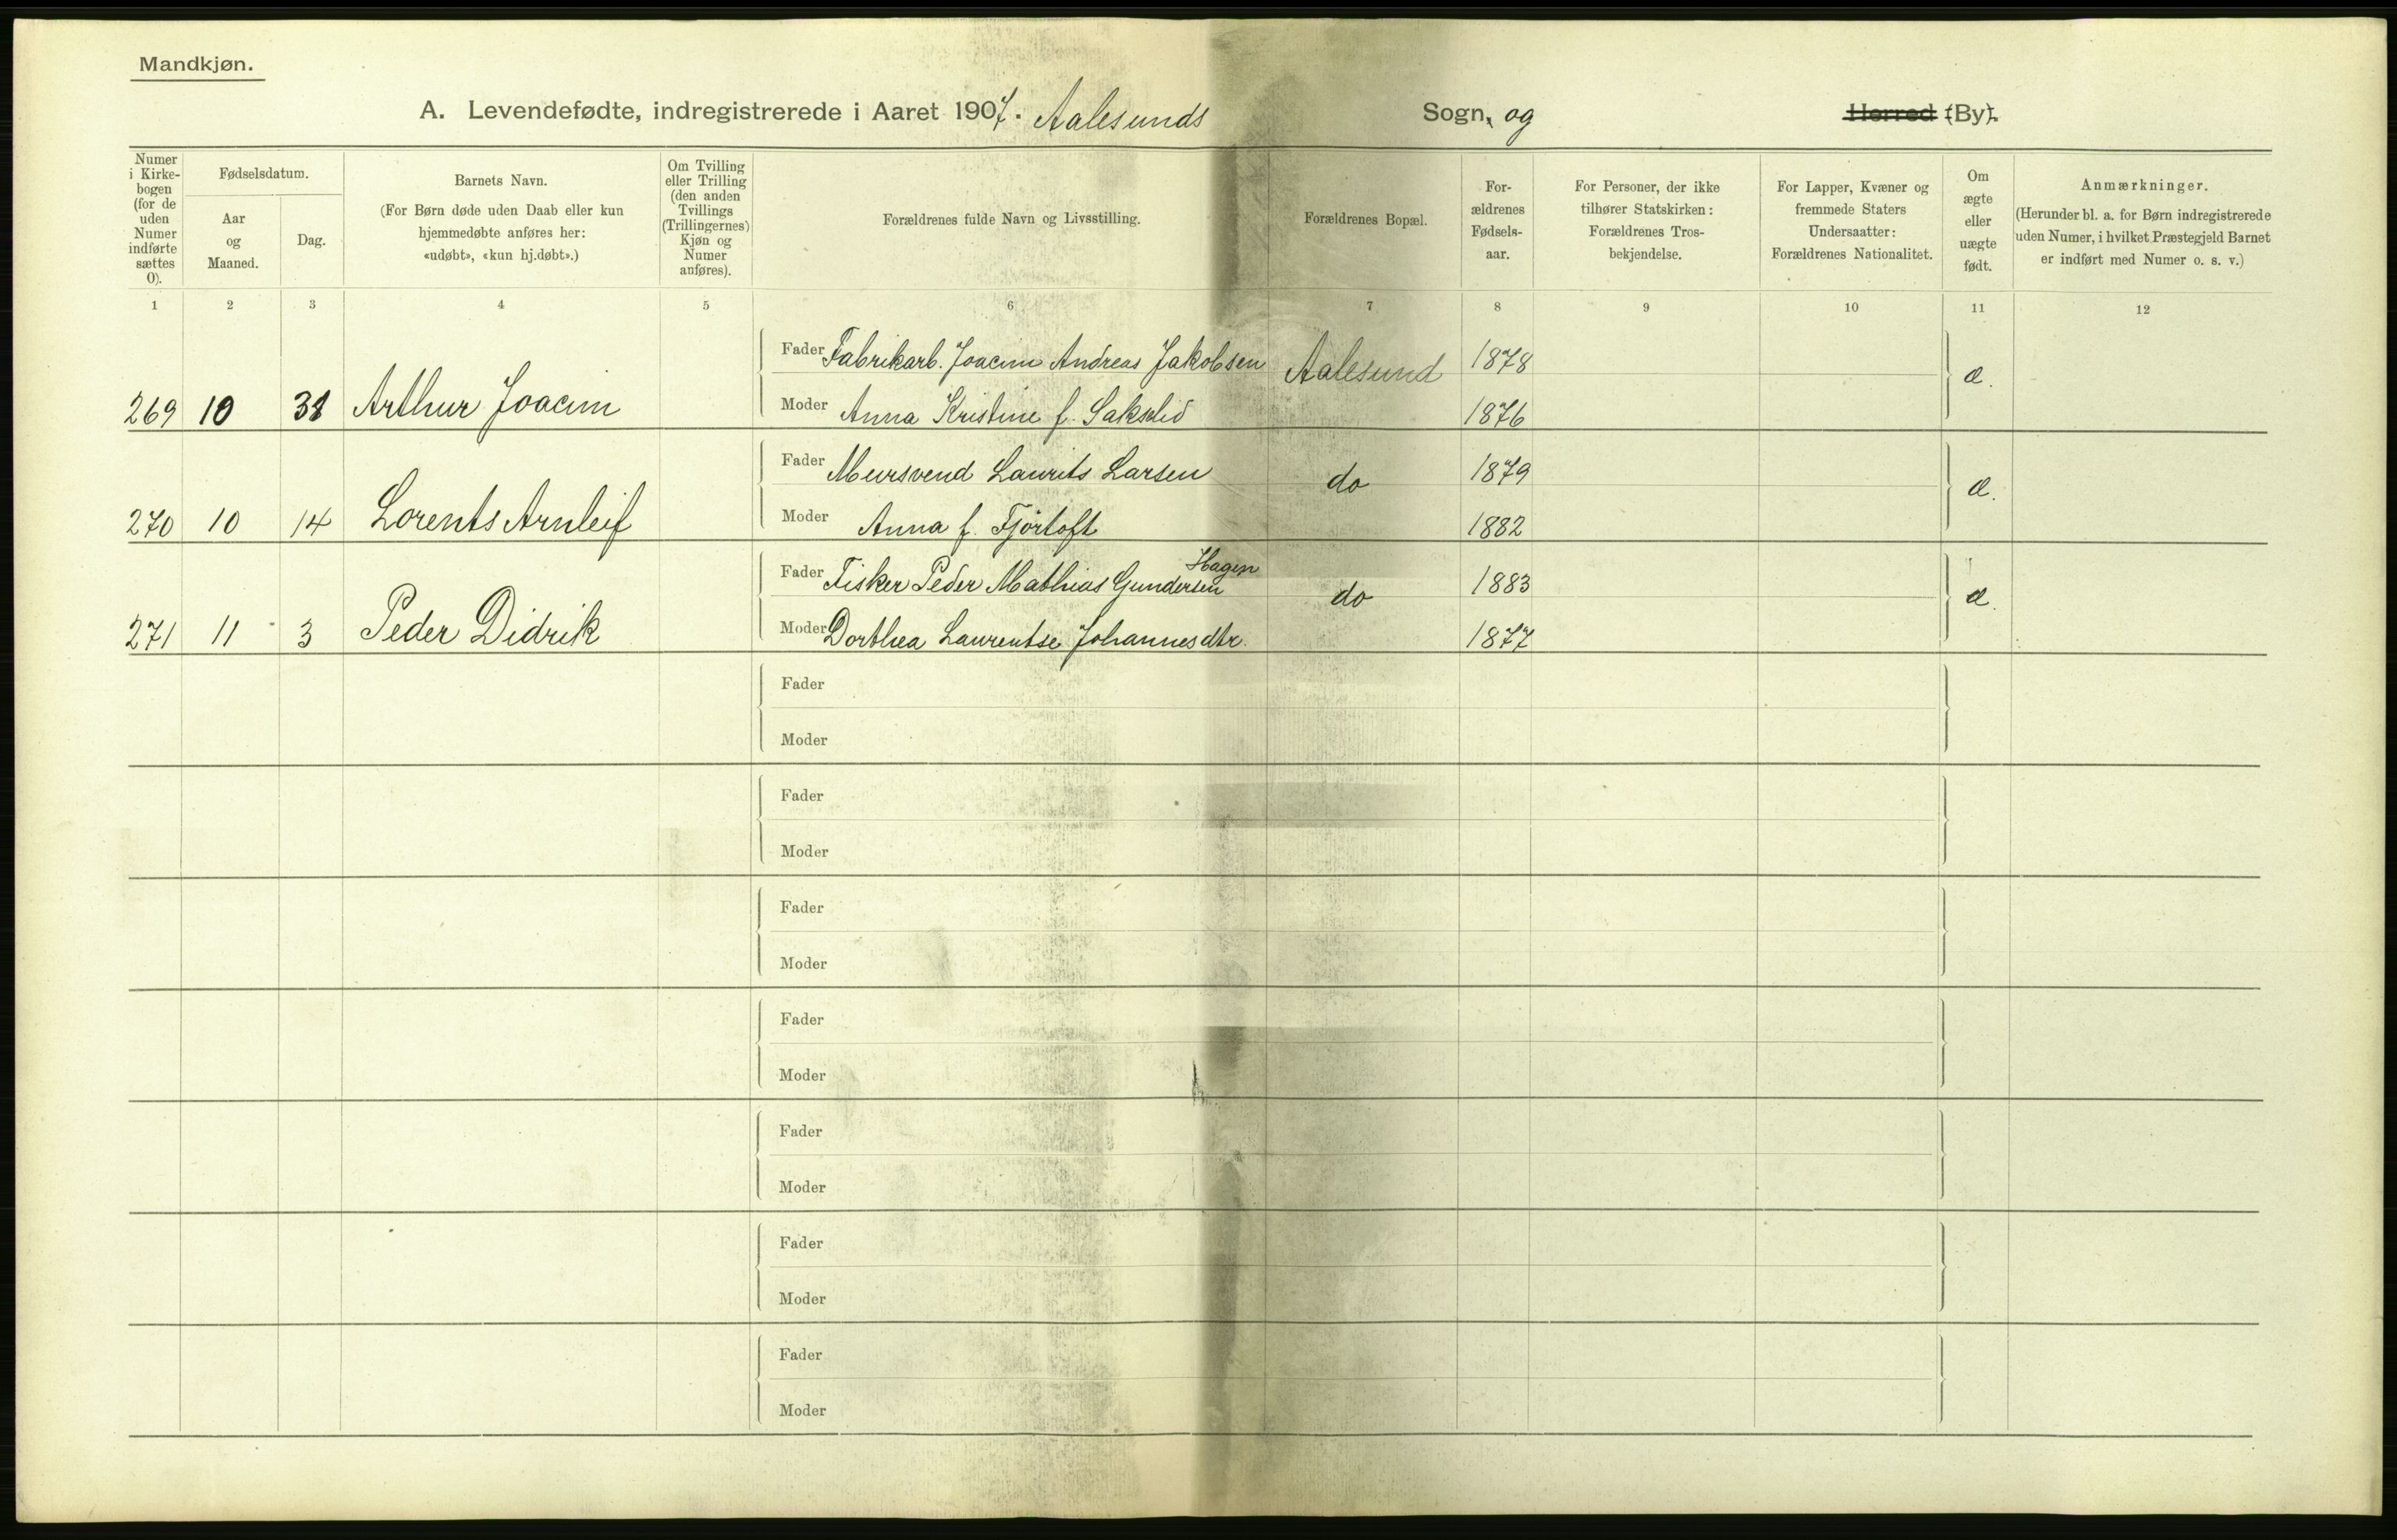 Mandkjøn.
A. Levendefødte, indregistrerede i Aaret 1907. Aalesunds Sogn, og Herred (By).
Numer i Kirkebogen (for de uden Numer indførte sættes 0).
Fødselsdatum.
Aar og Maaned.
Dag.
Barnets Navn.
(For Børn døde uden Daab eller kun hjemmedøbte anføres her: «udøbt», «kun hj.døbt».)
Om Tvilling eller Trilling (den anden Tvillings (Trillingernes) Kjøn og Numer anføres).
Forældrenes fulde Navn og Livsstilling.
Forældrenes Bopæl.
For-ældrenes Fødsels-aar.
For Personer, der ikke tilhører Statskirken: Forældrenes Tros-bekjendelse.
For Lapper, Kvæner og fremmede Staters Undersaatter: Forældrenes Nationalitet.
Om ægte eller uægte født.
Anmærkninger.
(Herunder bl. a. for Børn indregistrerede uden Numer, i hvilket Præstegjeld Barnet er indført med Numer o. s. v.)
1 2 3 4 5 6 7 8 9 10 11 12
Fader Fabrikarb. Joacim Andreas Jakobsen Aalesund 1878 æ.
269 10 31 Arthur Joacim Moder Anna Kristine f. Sakslid 1876
Fader Mursvend Laurits Larsen do 1879 æ.
270 10 14 Lorents Arnleif Moder Anna f. Fjörtoft 1882
Hagen
Fader Fisker Peder Mathias Gundersen do 1883 æ.
271 11 3 Peder Didrik Moder Dorthea Laurentse Johannesdtr. 1877
Fader
Moder
Fader
Moder
Fader
Moder
Fader
Moder
Fader
Moder
Fader
Moder
Fader
Moder